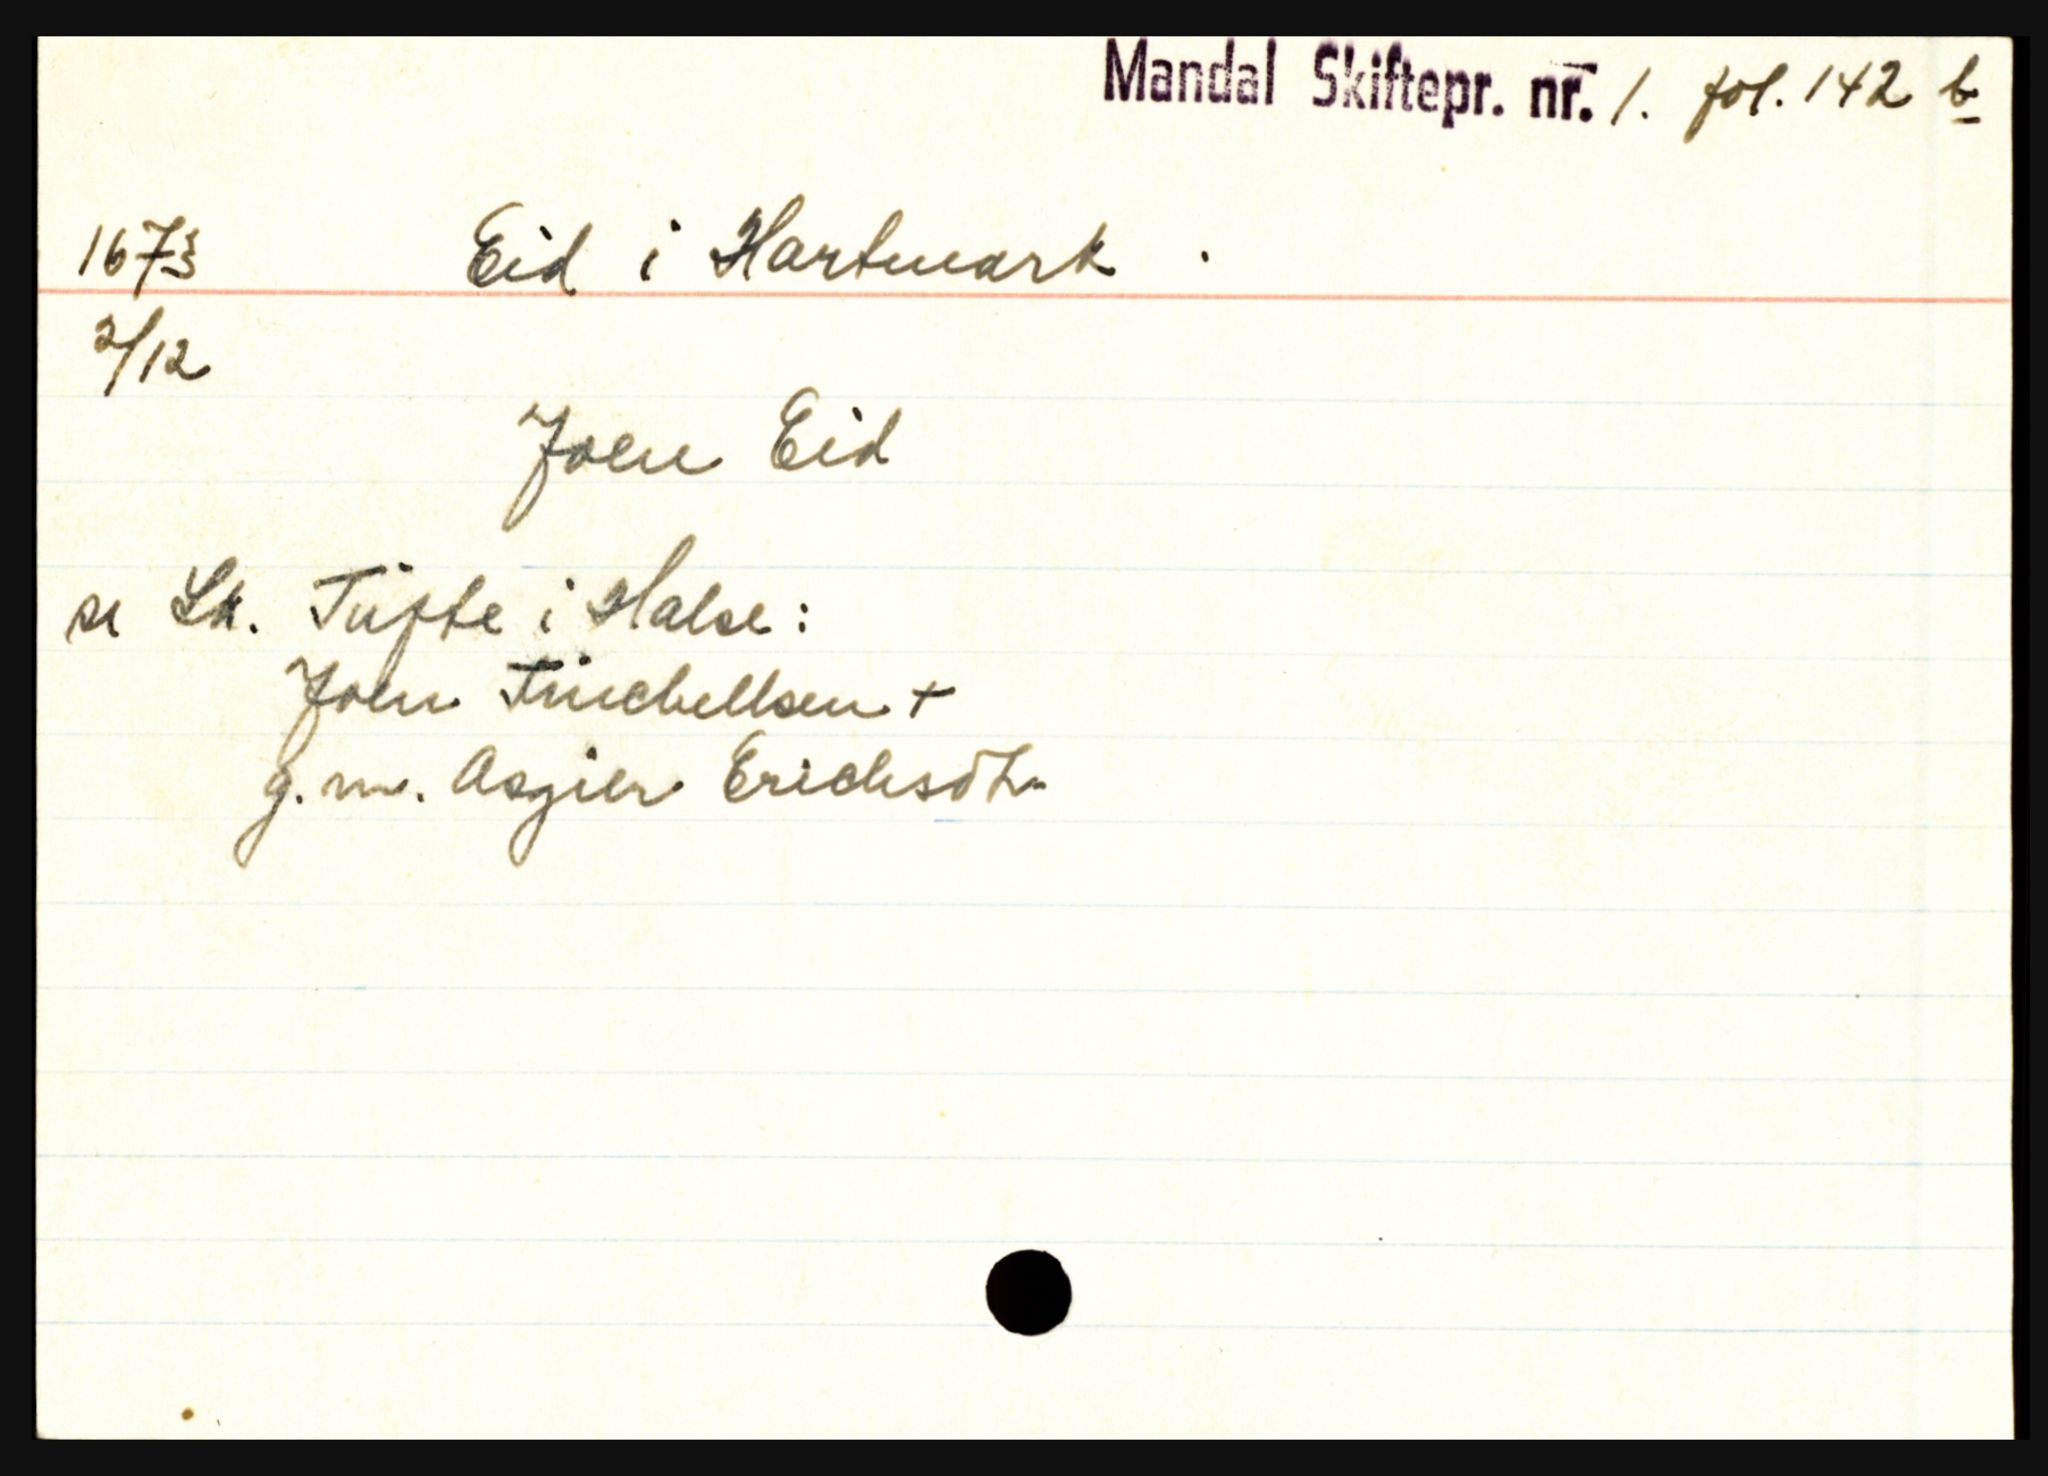 Mandal Skiftepr. nr. 1. fol. 142 b
1673 Eid i Hartmark.
2/12
Joen Eid
se Lk. Tufte i Halse:
Joen Trichellsen +
g. m. Asgier Erichsdtr.